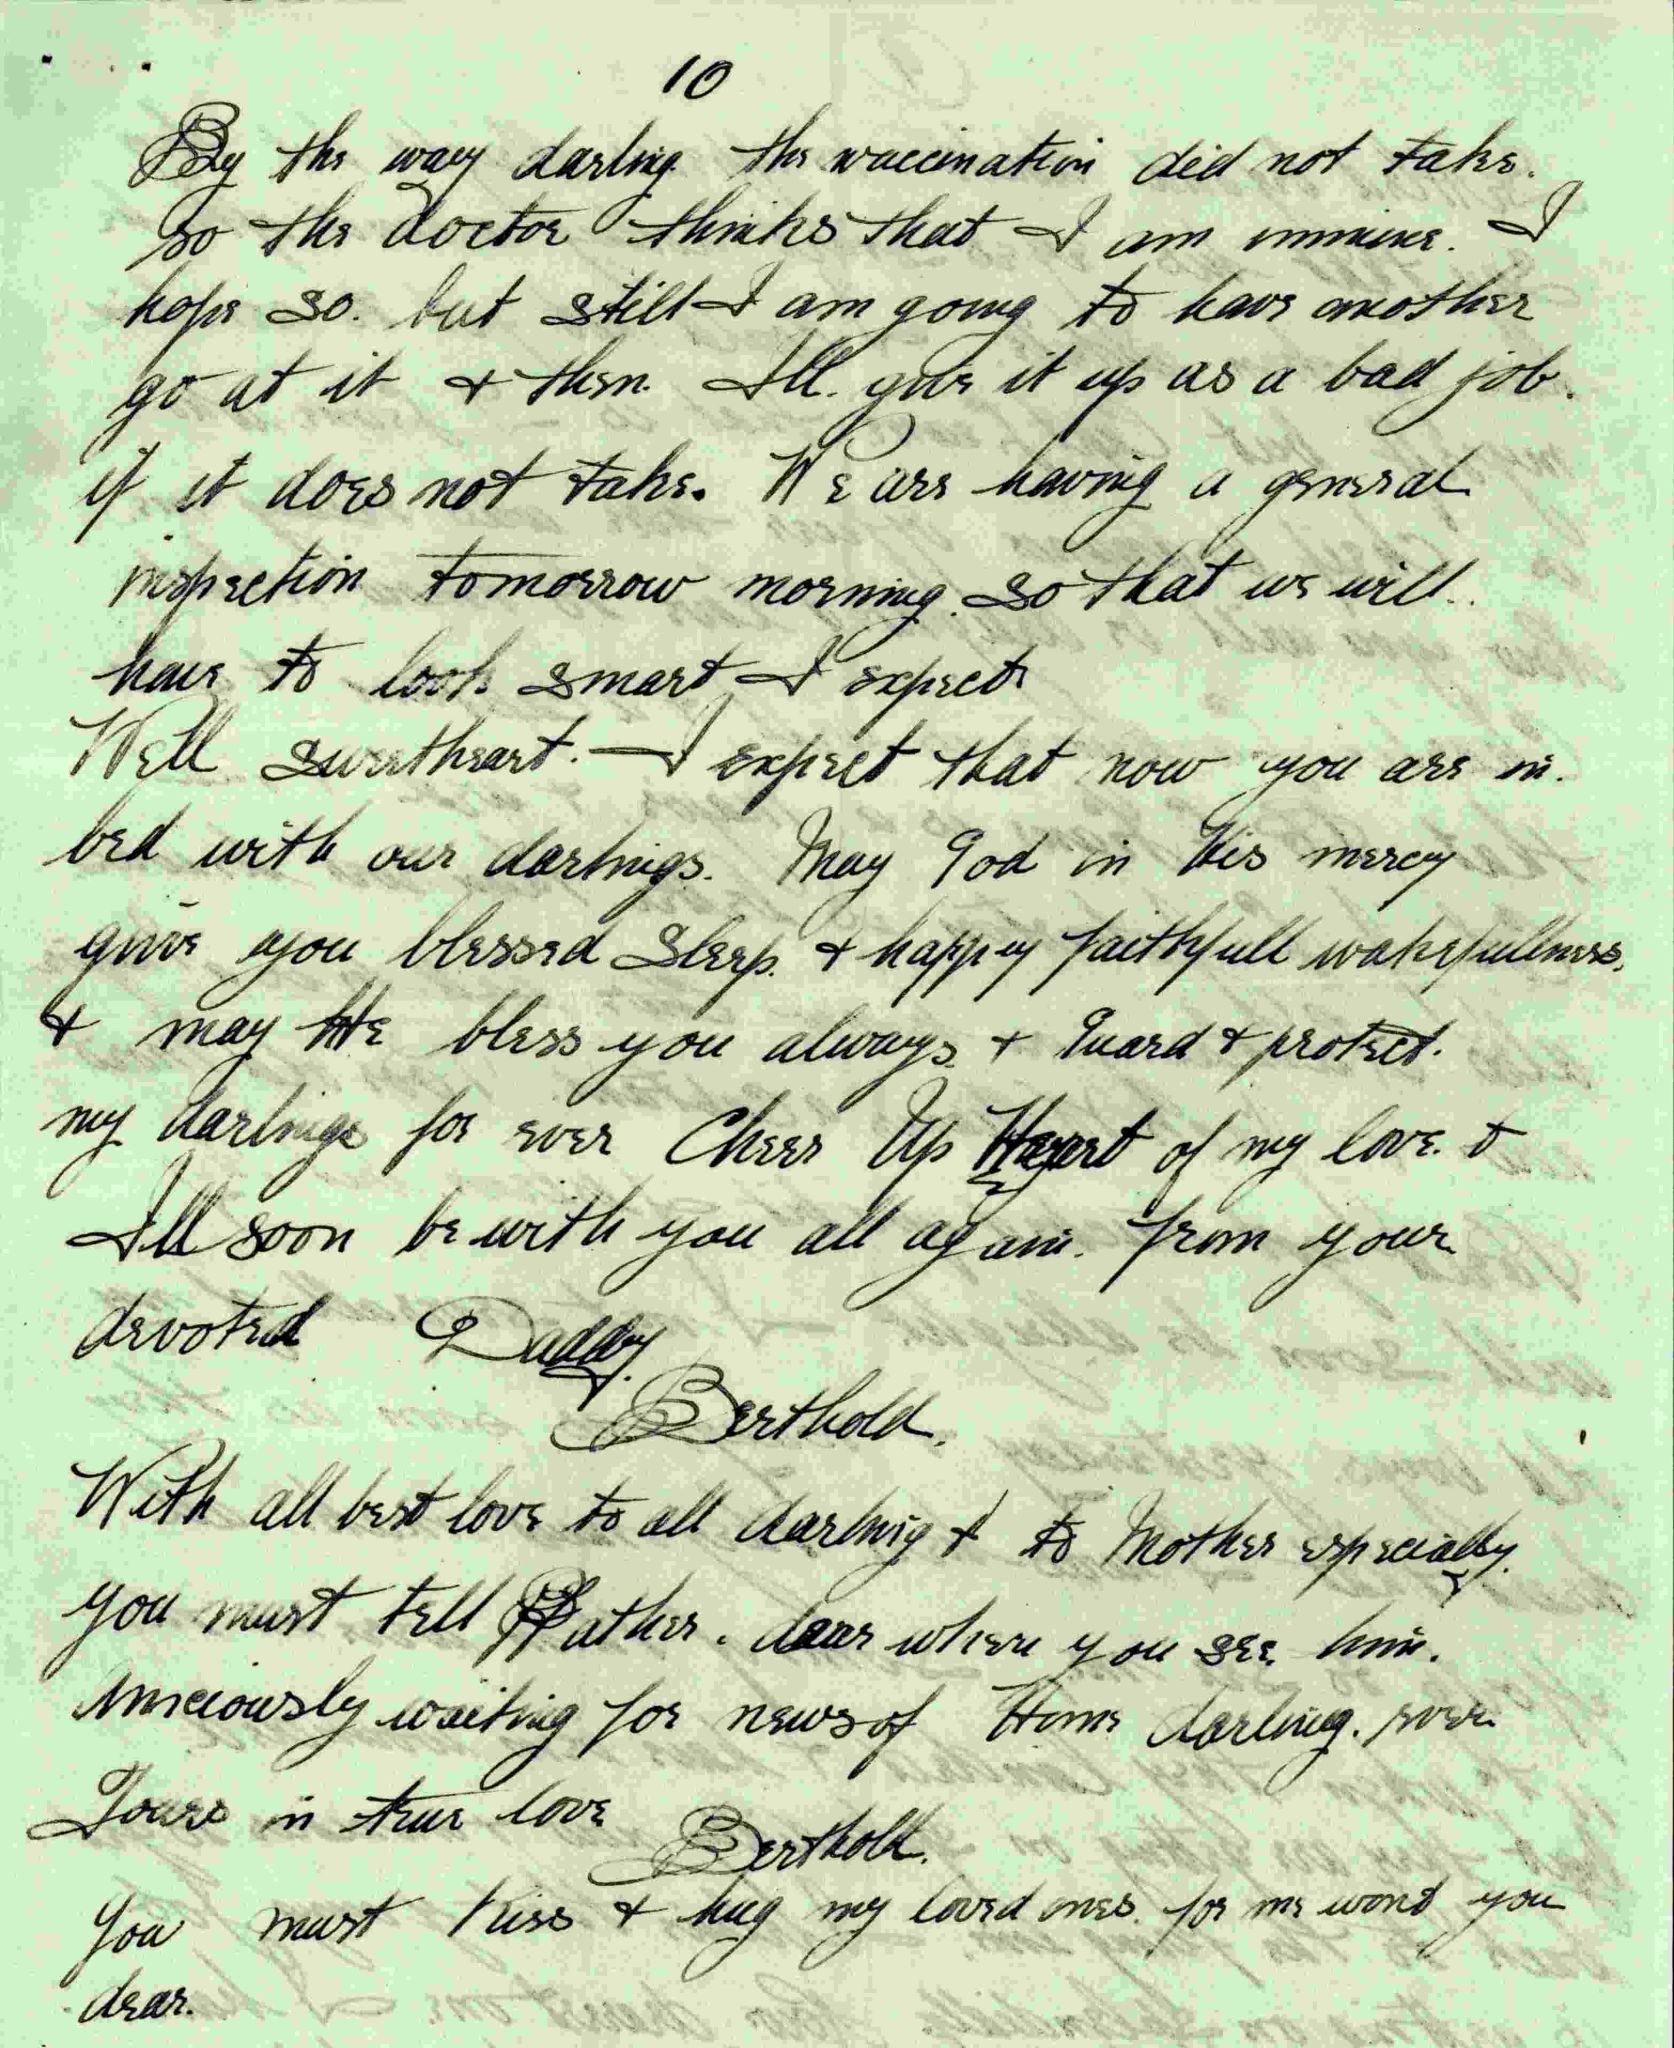 10
By the way darling the vaccination did not take.
so the doctor thinks that I am immune. I
hope so. but still I am going to have another
go at it & then. Ill. give it up as a bad job.
if it does not take. We are having a general
inspection tomorrow morning. so that we will.
have to look smart I expect
Well sweetheart. I expect that now you are in.
bed with our darlings. May God in His mercy
give you blessed sleep. & happy faithfull wakefullness.
& may He bless you always. & Guard & protect.
my darlings for ever Cheer Up Heart of my love. &
Ill soon be with you all again. from your
devoted Daddy.
Berthold.
With all best love to all darling & to Mother especially.
you must tell Father. dear when you see him.
Anxiously waiting for news of Home darling. ever
Yours in true love
Berthold.
You must kiss & hug my loved ones. for me wont you
dear.